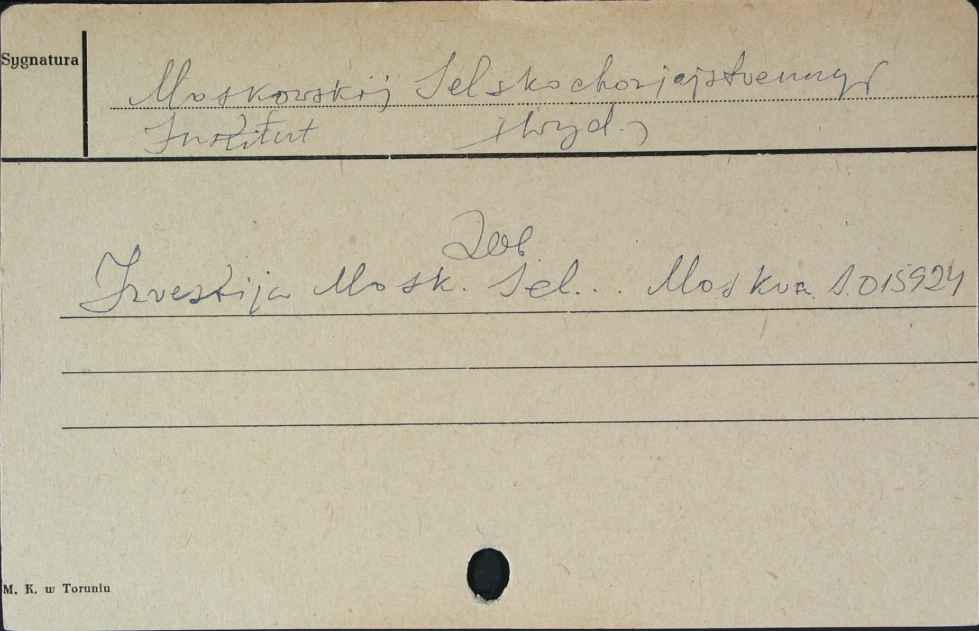 Sygnatura
Moskowskij Selskochozjajstvennyj
Institut (wyd.)
Zob.
Izvestija Mosk. Sel... Moskva S.015924
M. K. w Toruniu